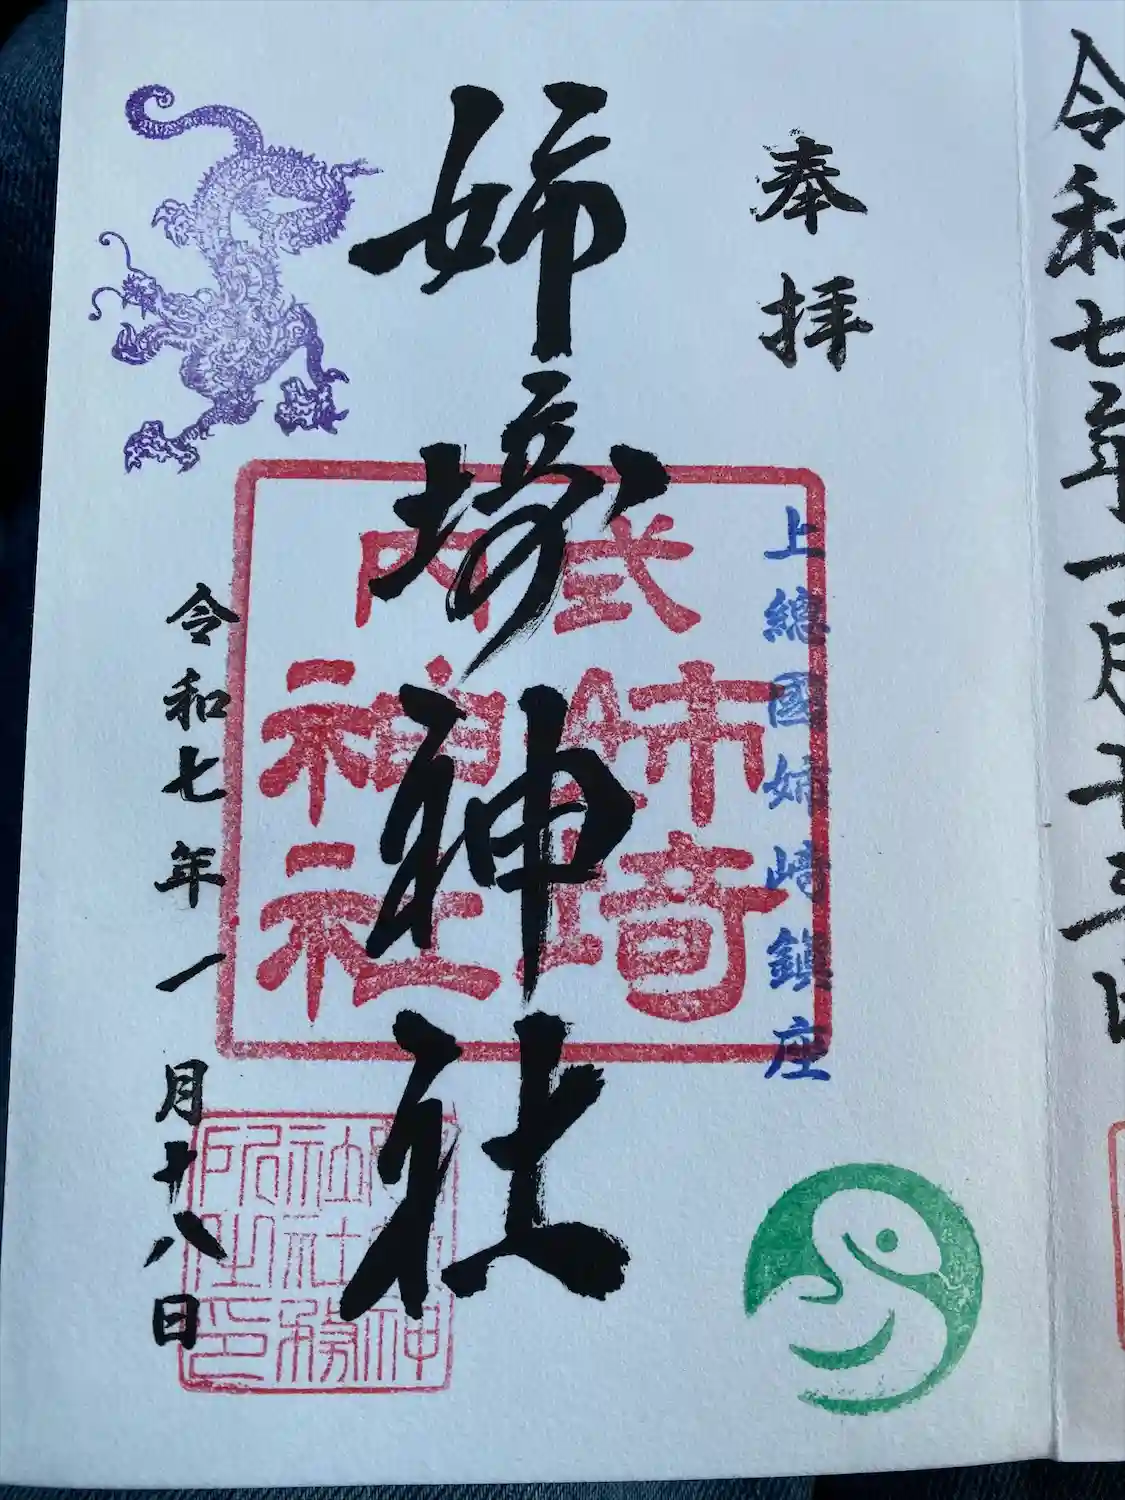 令和七年一月十三日
奉拝
上總國姉﨑鎮座
姉埼神社
式内
姉埼
神社
令和七年一月十八日